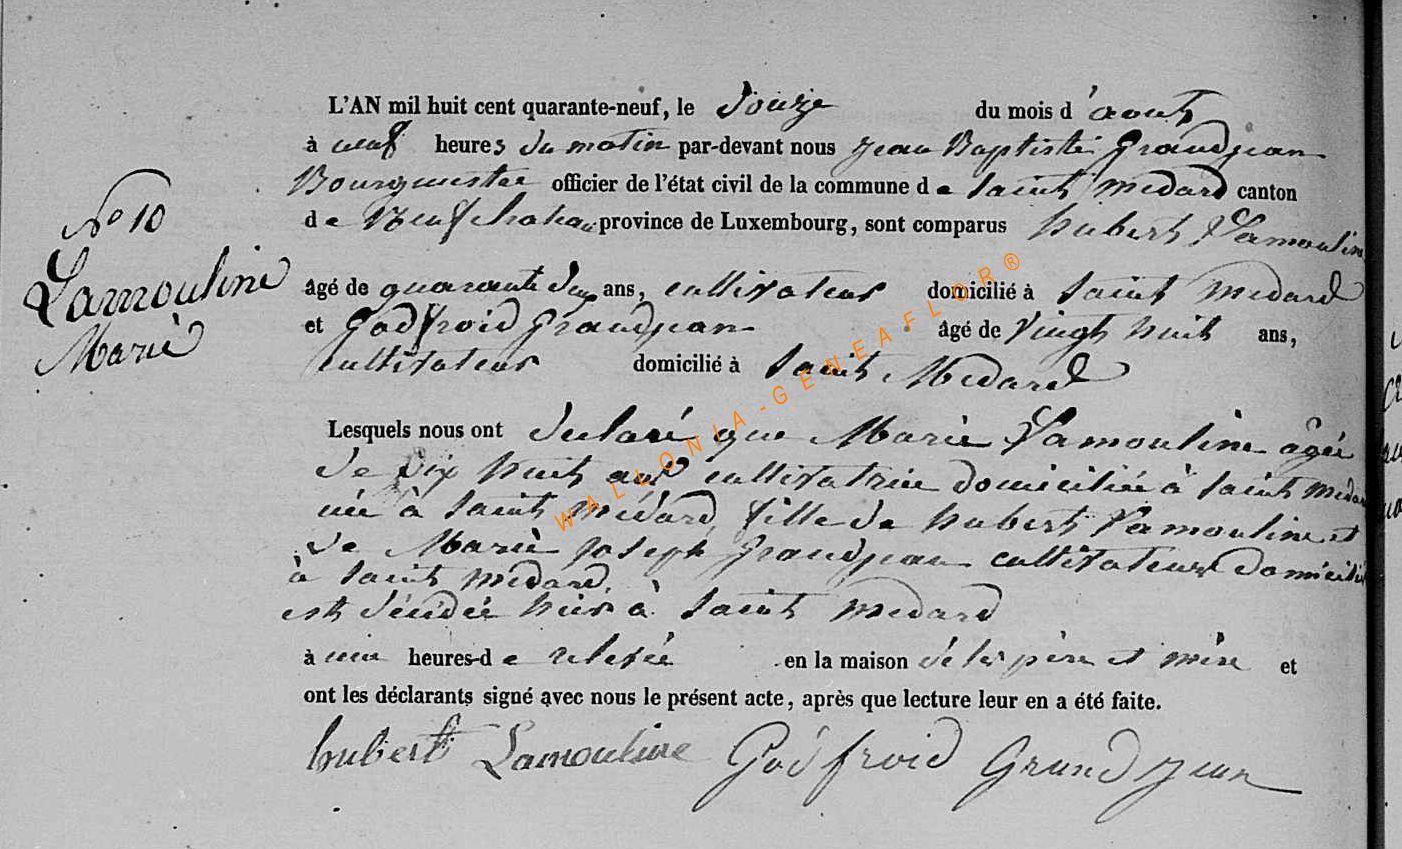 L'AN mil huit cent quarante-neuf, le douze du mois d'aout
à neuf heures du matin par-devant nous jean Baptiste Grandjean
Bourgmestre officier de l'état civil de la commune de saint medard canton
de Neufchateau province de Luxembourg, sont comparus hubert Lamouline
N° 10
Lamouline
Marie
âgé de quarante deux ans, cultivateur domicilié à saint medard
et Godfroid grandjean âgé de vingt huit ans,
cultivateur domicilié à saint Medard
Lesquels nous ont déclaré que Marie Lamouline âgée
de dix huit ans cultivatrice domiciliée à saint medard
née à saint médard fille de hubert Lamouline et
de Marie joseph grandjean cultivateurs domiciliés
à saint medard
est décédée hier à saint medard
à une heures de relevée en la maison de ses père et mère et
ont les déclarants signé avec nous le présent acte, après que lecture leur en a été faite.
hubert Lamouline Godfroid Grandjean
WALLONIA-GENEAFLOR®